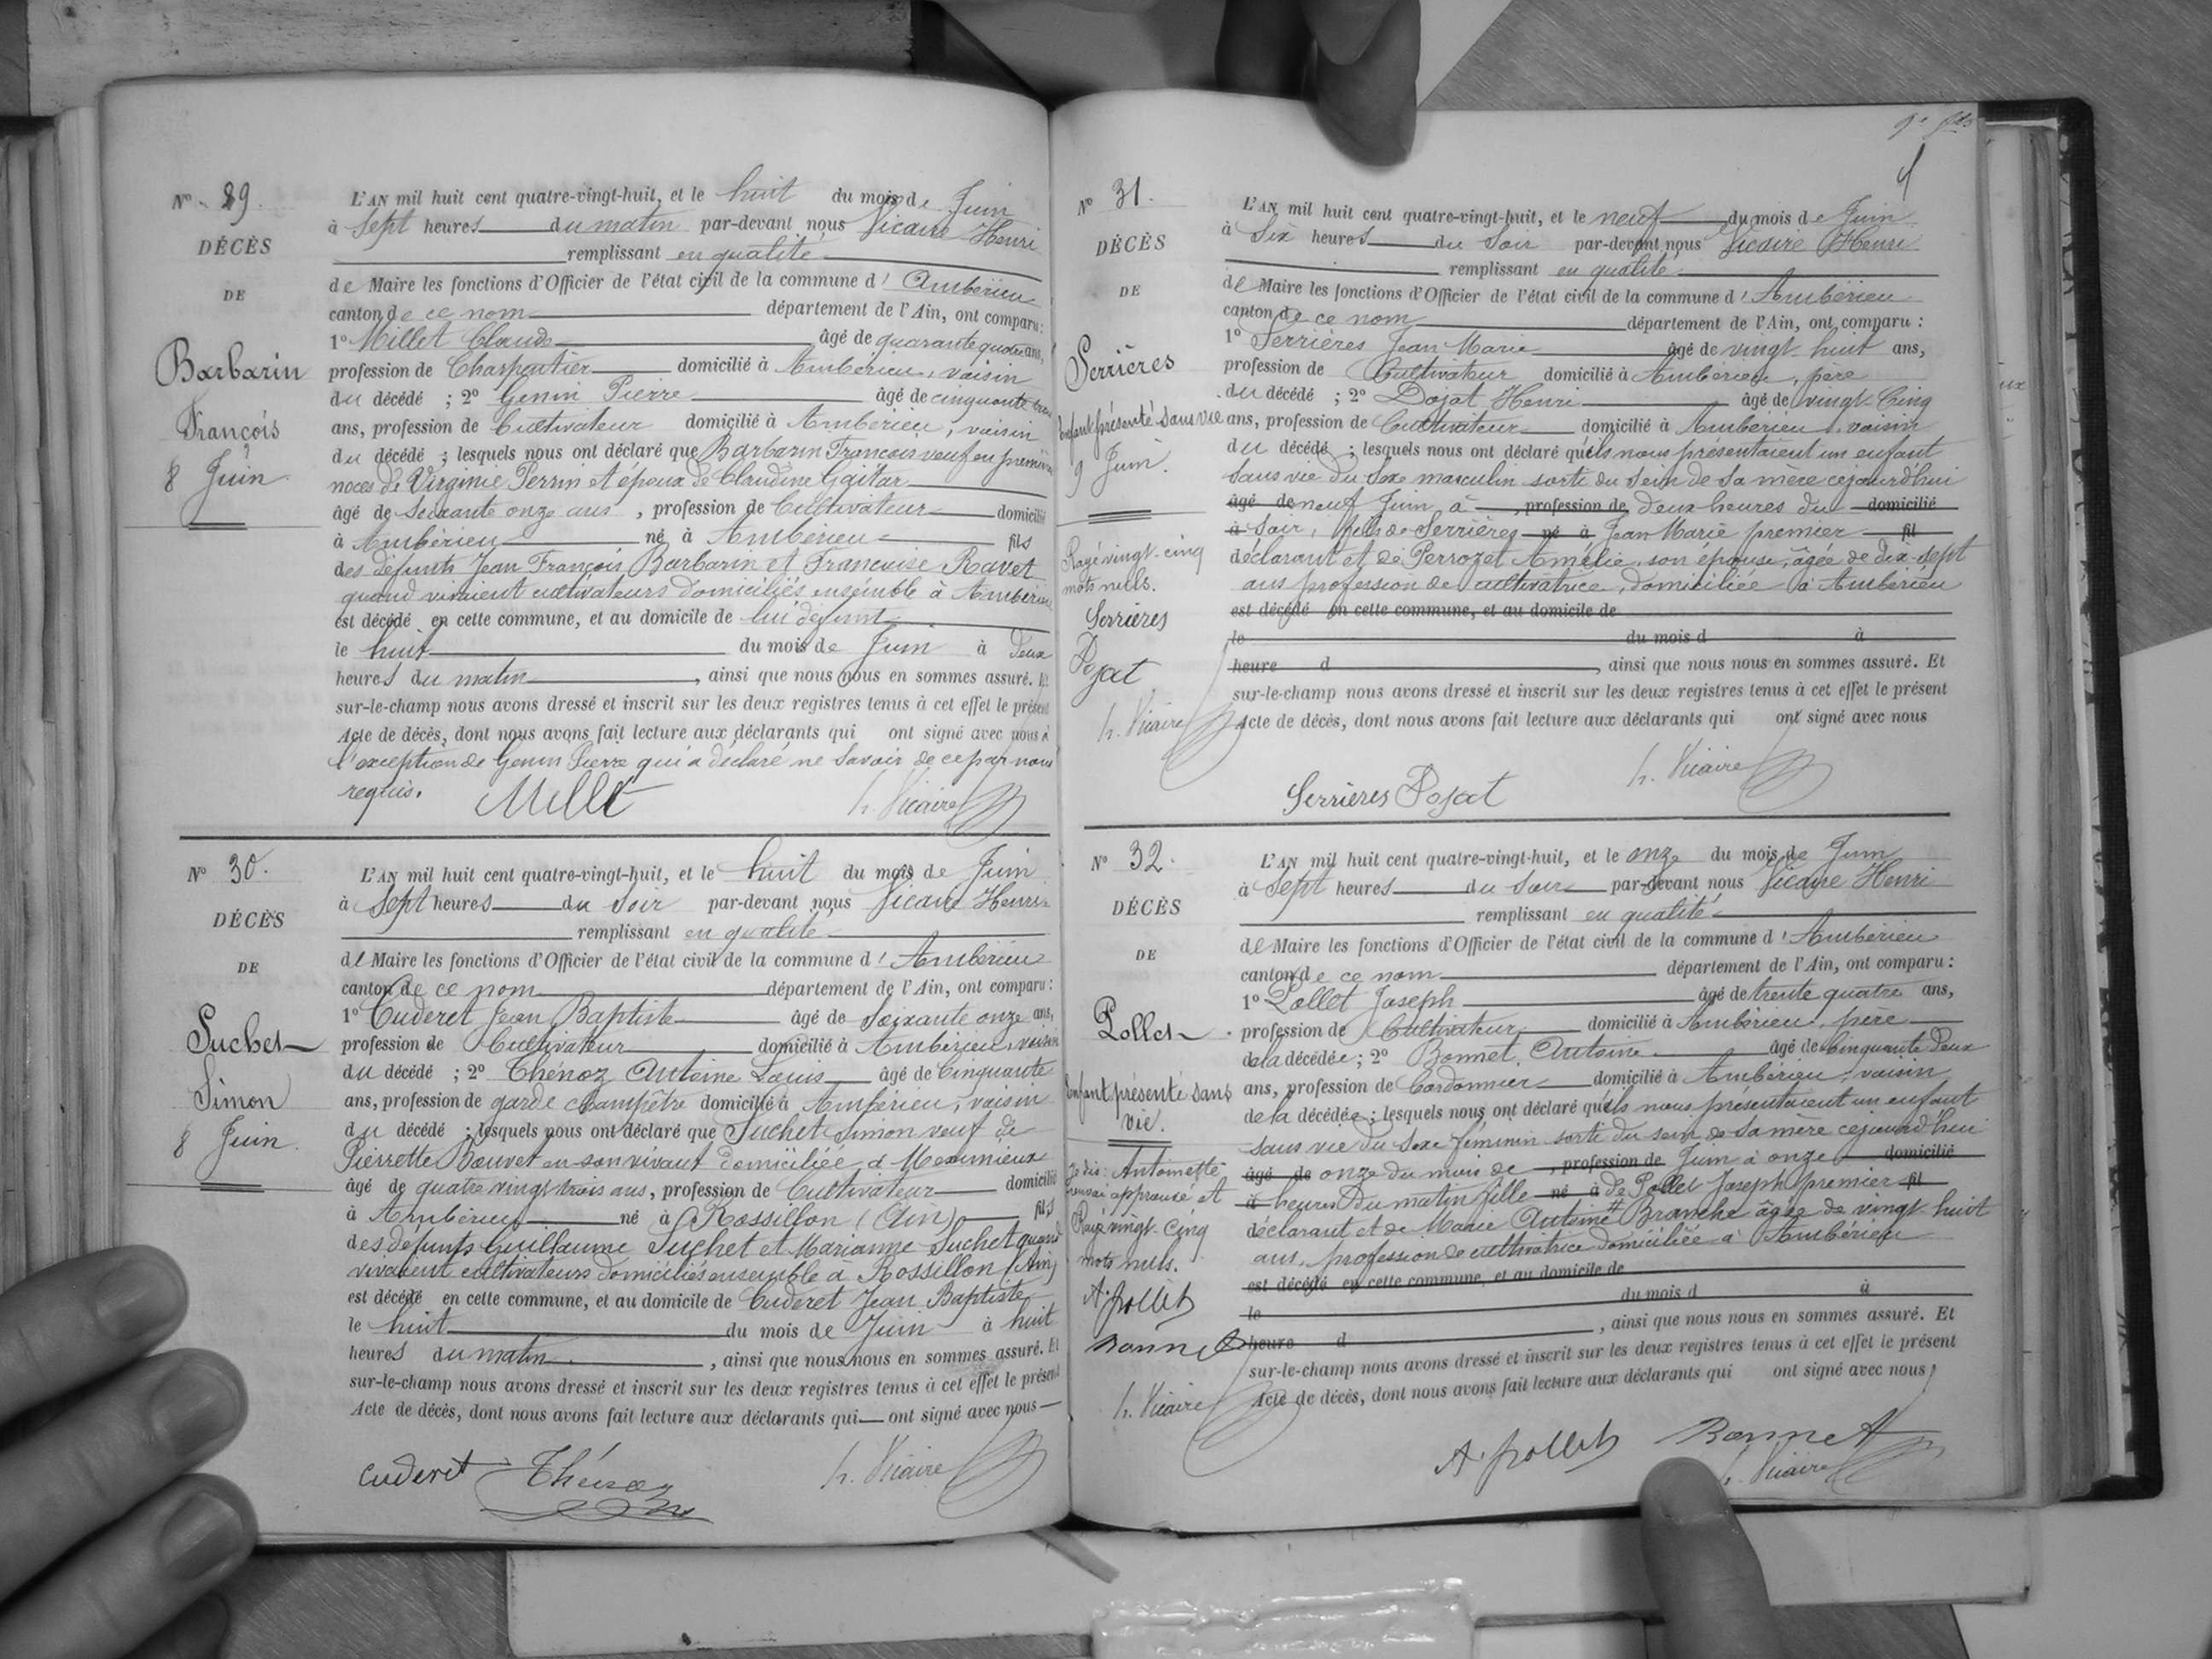 N° 29.
DÉCÈS
DE
Barbarin
François
8 Juin
L'AN mil huit cent quatre-vingt-huit, et le huit du mois de Juin
à Sept heures du matin par-devant nous Vicaire Henri
remplissant en qualité
de Maire les fonctions d'Officier de l'état civil de la commune d' Ambérieu
canton de ce nom département de l'Ain, ont comparu :
1° Millet Claude âgé de quarante quatre ans,
profession de Charpentier domicilié à Ambérieu, voisin
du décédé ; 2° Genin Pierre âgé de cinquante trois
ans, profession de Cultivateur domicilié à Ambérieu, voisin
du décédé ; lesquels nous ont déclaré que Barbarin François veuf en premières
noces de Virginie Perrin et époux de Claudine Gaitar
âgé de Soixante onze ans, profession de Cultivateur domicilié
à Ambérieu né à Ambérieu fils
des défunts Jean François Barbarin et Françoise Ravet
quand vivaient cultivateurs domiciliés ensemble à Ambérieu
est décédé en cette commune, et au domicile de lui défunt
le huit du mois de Juin à deux
heures du matin, ainsi que nous nous en sommes assuré. Et
sur-le-champ nous avons dressé et inscrit sur les deux registres tenus à cet effet le présent
Acte de décès, dont nous avons fait lecture aux déclarants qui ont signé avec nous à
l'exception de Genin Pierre qui a déclaré ne savoir de ce par nous
requis.
Millet h. Vicaire
N° 30.
DÉCÈS
DE
Suchet
Simon
8 Juin
L'AN mil huit cent quatre-vingt-huit, et le huit du mois de Juin
à Sept heures du soir par-devant nous Vicaire Henri
remplissant en qualité
de Maire les fonctions d'Officier de l'état civil de la commune d' Ambérieu
canton de ce nom département de l'Ain, ont comparu :
1° Cuderet Jean Baptiste âgé de soixante onze ans,
profession de Cultivateur domicilié à Ambérieu, voisin
du décédé ; 2° Thénoz Antoine Louis âgé de Cinquante
ans, profession de garde champêtre domicilié à Ambérieu, voisin
du décédé ; lesquels nous ont déclaré que Suchet Simon veuf de
Pierrette Bouvet en son vivant domiciliée à Meximieux
âgé de quatre vingt trois ans, profession de Cultivateur domicilié
à Ambérieu né à Rossillon (Ain) fils
des défunts Guillaume Suchet et Marianne Suchet quand
vivaient cultivateurs domiciliés ensemble à Rossillon (Ain)
est décédé en cette commune, et au domicile de Cuderet Jean Baptiste
le huit du mois de Juin à huit
heures du matin, ainsi que nous nous en sommes assuré. Et
sur-le-champ nous avons dressé et inscrit sur les deux registres tenus à cet effet le présent
Acte de décès, dont nous avons fait lecture aux déclarants qui ont signé avec nous
cuderet Thénoz h. Vicaire
N° 31.
DÉCÈS
DE
Serrières
Enfant présenté sans vie
9 Juin.
Rayé vingt-cinq
mots nuls.
Serrières
Dojat
h. Vicaire
L'AN mil huit cent quatre-vingt-huit, et le neuf du mois de Juin
à Six heures du Soir par-devant nous Vicaire Henri
remplissant en qualité
de Maire les fonctions d'Officier de l'état civil de la commune d' Ambérieu
canton de ce nom département de l'Ain, ont comparu :
1° Serrières Jean Marie âgé de vingt-huit ans,
profession de Cultivateur domicilié à Ambérieu, père
du décédé ; 2° Dojat Henri âgé de vingt-Cinq
ans, profession de Cultivateur domicilié à Ambérieu, voisin
du décédé ; lesquels nous ont déclaré qu'ils nous présentaient un enfant
sans vie du sexe masculin sorti du sein de sa mère cejourd'hui
âgé de neuf Juin à profession de deux heures du domicilié
à soir, fils de Serrières né à Jean Marie premier fil
déclarant et de Perrozet Amélie, son épouse, âgée de dix-sept
ans profession de cultivatrice, domiciliée à Ambérieu
est décédé en cette commune, et au domicile de
le du mois d à
heure d , ainsi que nous nous en sommes assuré. Et
sur-le-champ nous avons dressé et inscrit sur les deux registres tenus à cet effet le présent
Acte de décès, dont nous avons fait lecture aux déclarants qui ont signé avec nous
h. Vicaire
Serrières Dojat
N° 32.
DÉCÈS
DE
Pollet
Enfant présenté sans
vie.
Je dis: Antoinette
renvoi approuvé et
Rayé vingt-cinq
mots nuls.
A. pollet
Bonnet
h. Vicaire
L'AN mil huit cent quatre-vingt-huit, et le onze du mois de Juin
à Sept heures du Soir par-devant nous Vicaire Henri
remplissant en qualité
de Maire les fonctions d'Officier de l'état civil de la commune d' Ambérieu
canton de ce nom département de l'Ain, ont comparu :
1° Pollet Joseph âgé de trente quatre ans,
profession de Cultivateur domicilié à Ambérieu, père
de la décédée ; 2° Bonnet Antoine âgé de Cinquante deux
ans, profession de Cordonnier domicilié à Ambérieu, voisin
de la décédée ; lesquels nous ont déclaré qu'ils nous présentaient un enfant
sans vie du sexe féminin sorti du sein de sa mère cejourd'hui
âgé de onze du mois de profession de Juin à onze domicilié
à heures du matin fille né à de Pollet Joseph premier fil
déclarant et de Marie Antoine Branche âgée de vingt huit
ans, profession de cultivatrice domiciliée à Ambérieu
est décédé en cette commune, et au domicile de
le du mois d à
heure d , ainsi que nous nous en sommes assuré. Et
sur-le-champ nous avons dressé et inscrit sur les deux registres tenus à cet effet le présent
Acte de décès, dont nous avons fait lecture aux déclarants qui ont signé avec nous
A. pollet Bonnet
h. Vicaire